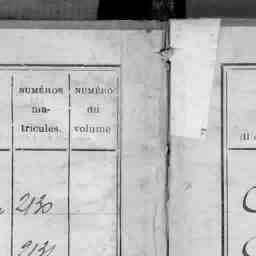 NUMÉROS
ma-
tricules.
NUMÉRO
du
volume
2130
2131